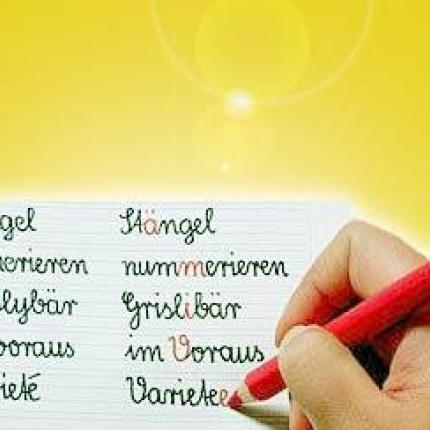 gel Stängel
nummerieren
lybär Grislibär
voraus im Voraus
ieté Varietee